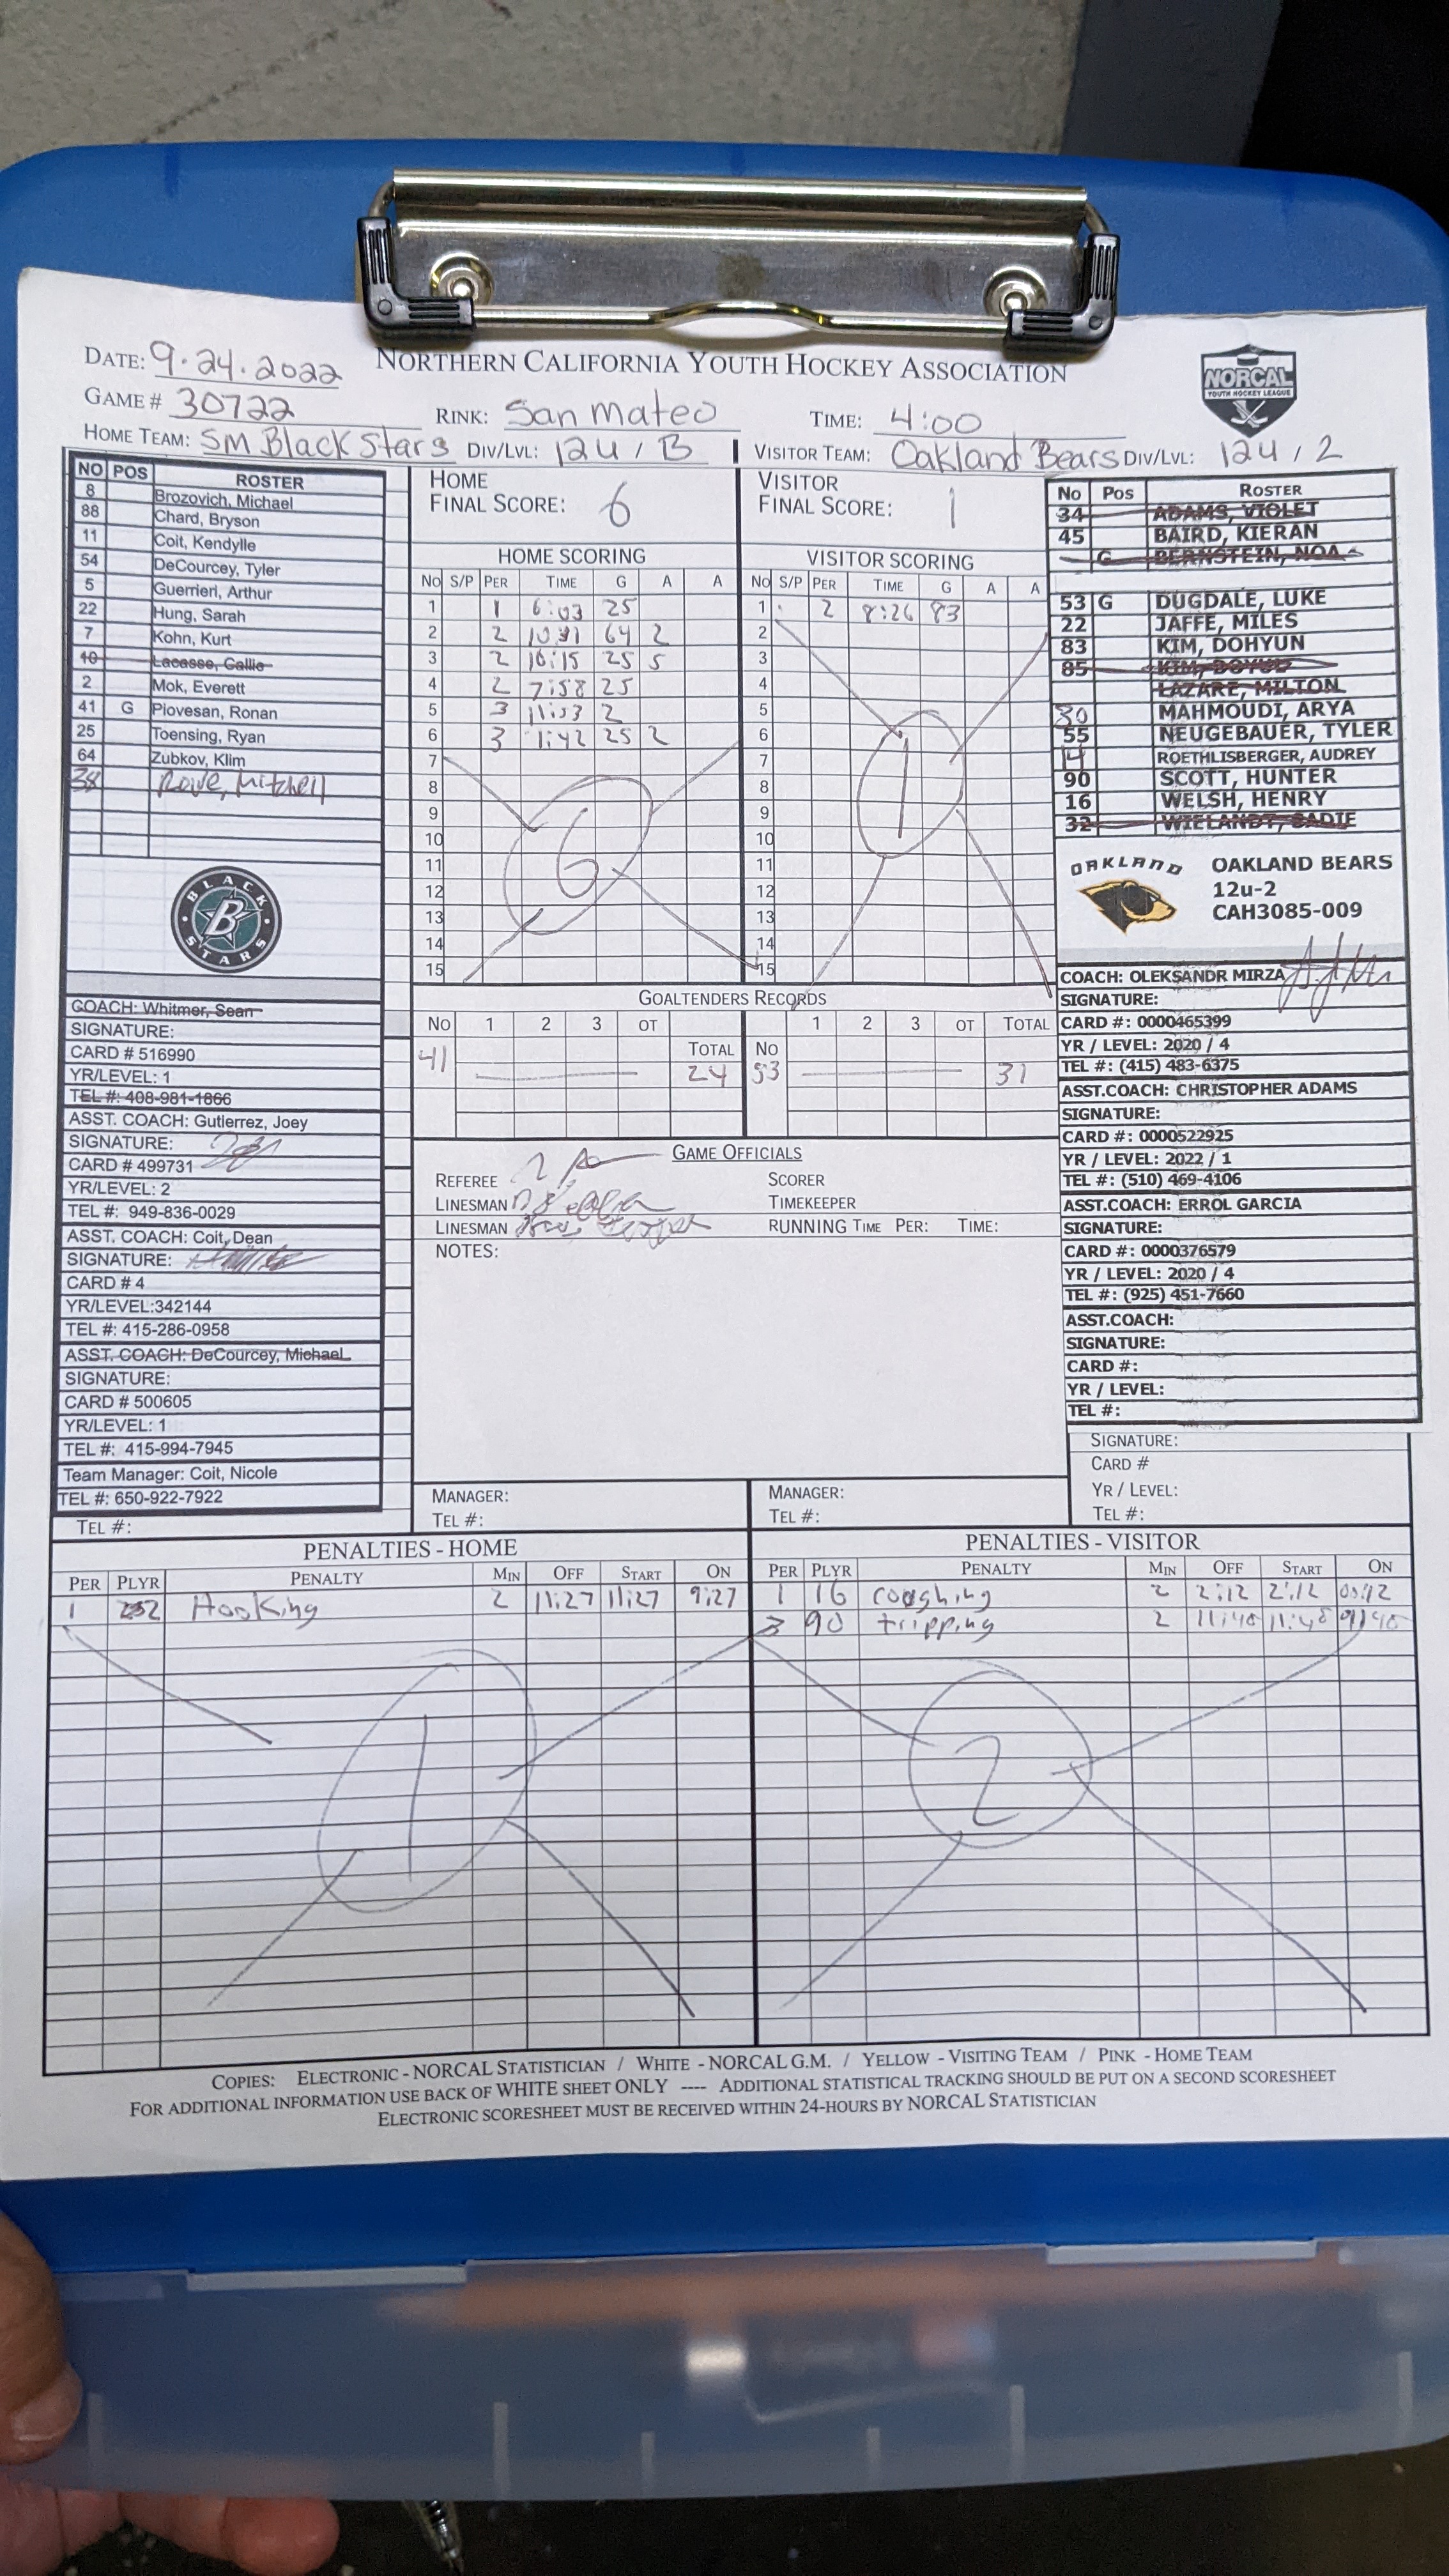 DATE: 9.24.2022 NORTHERN CALIFORNIA YOUTH HOCKEY ASSOCIATION
NORCAL
YOUTH HOCKEY LEAGUE
GAME # 30722 RINK: San Mateo TIME: 4:00
HOME TEAM: SM Black Stars DIV/LVL: 12U / B VISITOR TEAM: Oakland Bears DIV/LVL: 12U / 2
NO POS ROSTER
8 Brozovich, Michael
88 Chard, Bryson
11 Coit, Kendylle
54 DeCourcey, Tyler
5 Guerrieri, Arthur
22 Hung, Sarah
7 Kohn, Kurt
10 Lacasse, Callie
2 Mok, Everett
41 G Piovesan, Ronan
25 Toensing, Ryan
64 Zubkov, Klim
38 Rowe, Mitchell
BLACK STARS
B
COACH: Whitmer, Sean
SIGNATURE:
CARD # 516990
YR/LEVEL: 1
TEL #: 408-981-1866
ASST. COACH: Gutierrez, Joey
SIGNATURE:
CARD # 499731
YR/LEVEL: 2
TEL #: 949-836-0029
ASST. COACH: Coit, Dean
SIGNATURE:
CARD # 4
YR/LEVEL:342144
TEL #: 415-286-0958
ASST. COACH: DeCourcey, Michael
SIGNATURE:
CARD # 500605
YR/LEVEL: 1
TEL #: 415-994-7945
Team Manager: Coit, Nicole
TEL #: 650-922-7922
TEL #:
HOME
FINAL SCORE: 6
VISITOR
FINAL SCORE: 1
HOME SCORING
NO S/P PER TIME G A A
1 1 6:03 25
2 2 64 2
3 2 10:15 25 5
4 2 7:58 25
5 3 11:53 2
6 3 1:42 25 2
7
8
9
10
11
12
13
14
15
6
VISITOR SCORING
NO S/P PER TIME G A A
1 2 8:26 83
2
3
4
5
6
7
8
9
10
11
12
13
14
15
1
GOALTENDERS RECORDS
NO 1 2 3 OT TOTAL
41 24
NO 1 2 3 OT TOTAL
53 31
GAME OFFICIALS
REFEREE
LINESMAN
LINESMAN
SCORER
TIMEKEEPER
RUNNING TIME PER: TIME:
NOTES:
MANAGER:
TEL #:
MANAGER:
TEL #:
NO POS ROSTER
34 ADAMS, VIOLET
45 BAIRD, KIERAN
G BERNSTEIN, NOA
53 G DUGDALE, LUKE
22 JAFFE, MILES
83 KIM, DOHYUN
85 KIM,
LAZARE, MILTON
30 MAHMOUDI, ARYA
55 NEUGEBAUER, TYLER
14 ROETHLISBERGER, AUDREY
90 SCOTT, HUNTER
16 WELSH, HENRY
32 WIELANDT, SADIE
OAKLAND
OAKLAND BEARS
12u-2
CAH3085-009
COACH: OLEKSANDR MIRZA
SIGNATURE:
CARD #: 0000465399
YR / LEVEL: 2020 / 4
TEL #: (415) 483-6375
ASST.COACH: CHRISTOPHER ADAMS
SIGNATURE:
CARD #: 0000522925
YR / LEVEL: 2022 / 1
TEL #: (510) 469-4106
ASST.COACH: ERROL GARCIA
SIGNATURE:
CARD #: 0000376579
YR / LEVEL: 2020 / 4
TEL #: (925) 451-7660
ASST.COACH:
SIGNATURE:
CARD #:
YR / LEVEL:
TEL #:
SIGNATURE:
CARD #
YR / LEVEL:
TEL #:
PENALTIES - HOME
PER PLYR PENALTY MIN OFF START ON
1 Hooking 2 11:27 11:27 9:27
1
PENALTIES - VISITOR
PER PLYR PENALTY MIN OFF START ON
1 16 roughing 2 2:12 2:12 00:12
3 90 tripping 2 11:48 11:48 9:48
2
COPIES: ELECTRONIC - NORCAL STATISTICIAN / WHITE - NORCAL G.M. / YELLOW - VISITING TEAM / PINK - HOME TEAM
FOR ADDITIONAL INFORMATION USE BACK OF WHITE SHEET ONLY ---- ADDITIONAL STATISTICAL TRACKING SHOULD BE PUT ON A SECOND SCORESHEET
ELECTRONIC SCORESHEET MUST BE RECEIVED WITHIN 24-HOURS BY NORCAL STATISTICIAN